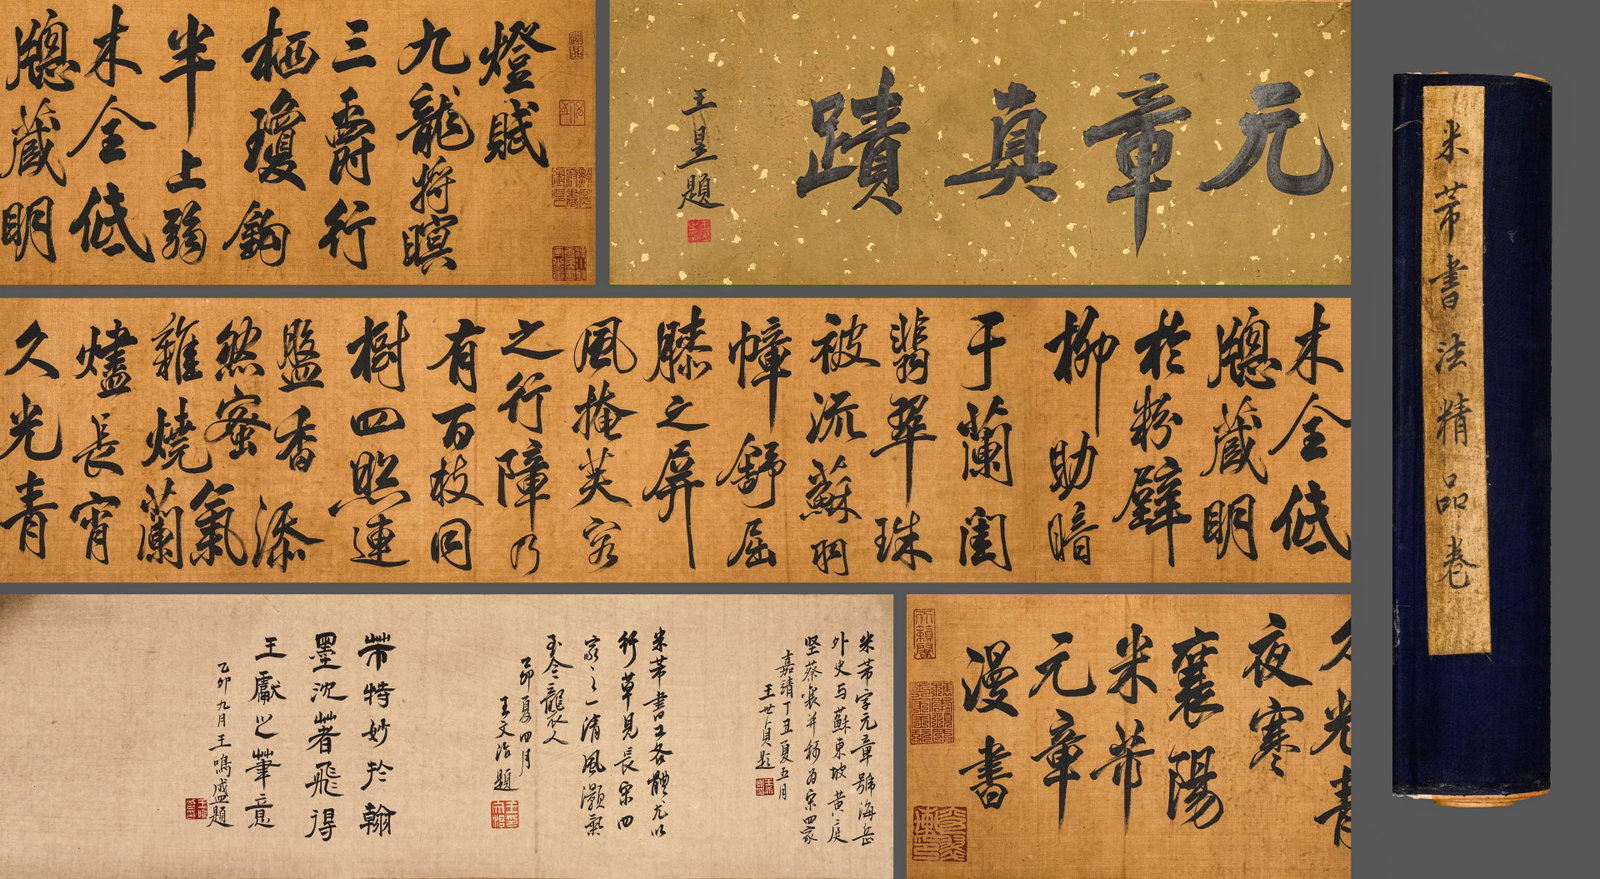 米芾書法精品卷
元章真蹟
王皇題
燈賦
九龍將暝
三爵行
栖瓊鉤
半上弱
木全低
牕藏明
木全低
牕藏明
於粉壁
柳助暗
于蘭閨
翡翠珠
被流蘇羽
幛舒屈
膝之屏
風掩芙容
之行障乃
有百枝同
樹四照連
盤香添
然蜜氣
雜燒蘭
燼長宵
久光青
久光青
夜寒
襄陽
米芾
元章
漫書
米芾字元章號海岳
外史与蘇東坡黄庭
坚蔡襄并称为宋四家
嘉靖丁丑夏五月
王世貞題
米芾書工各體尤以
行草見長宋四
家之一清風灝氣
至今襲人
乙卯夏四月
王文治題
芾特妙於翰
墨沈著飛得
王獻之筆意
乙卯九月王鳴盛題